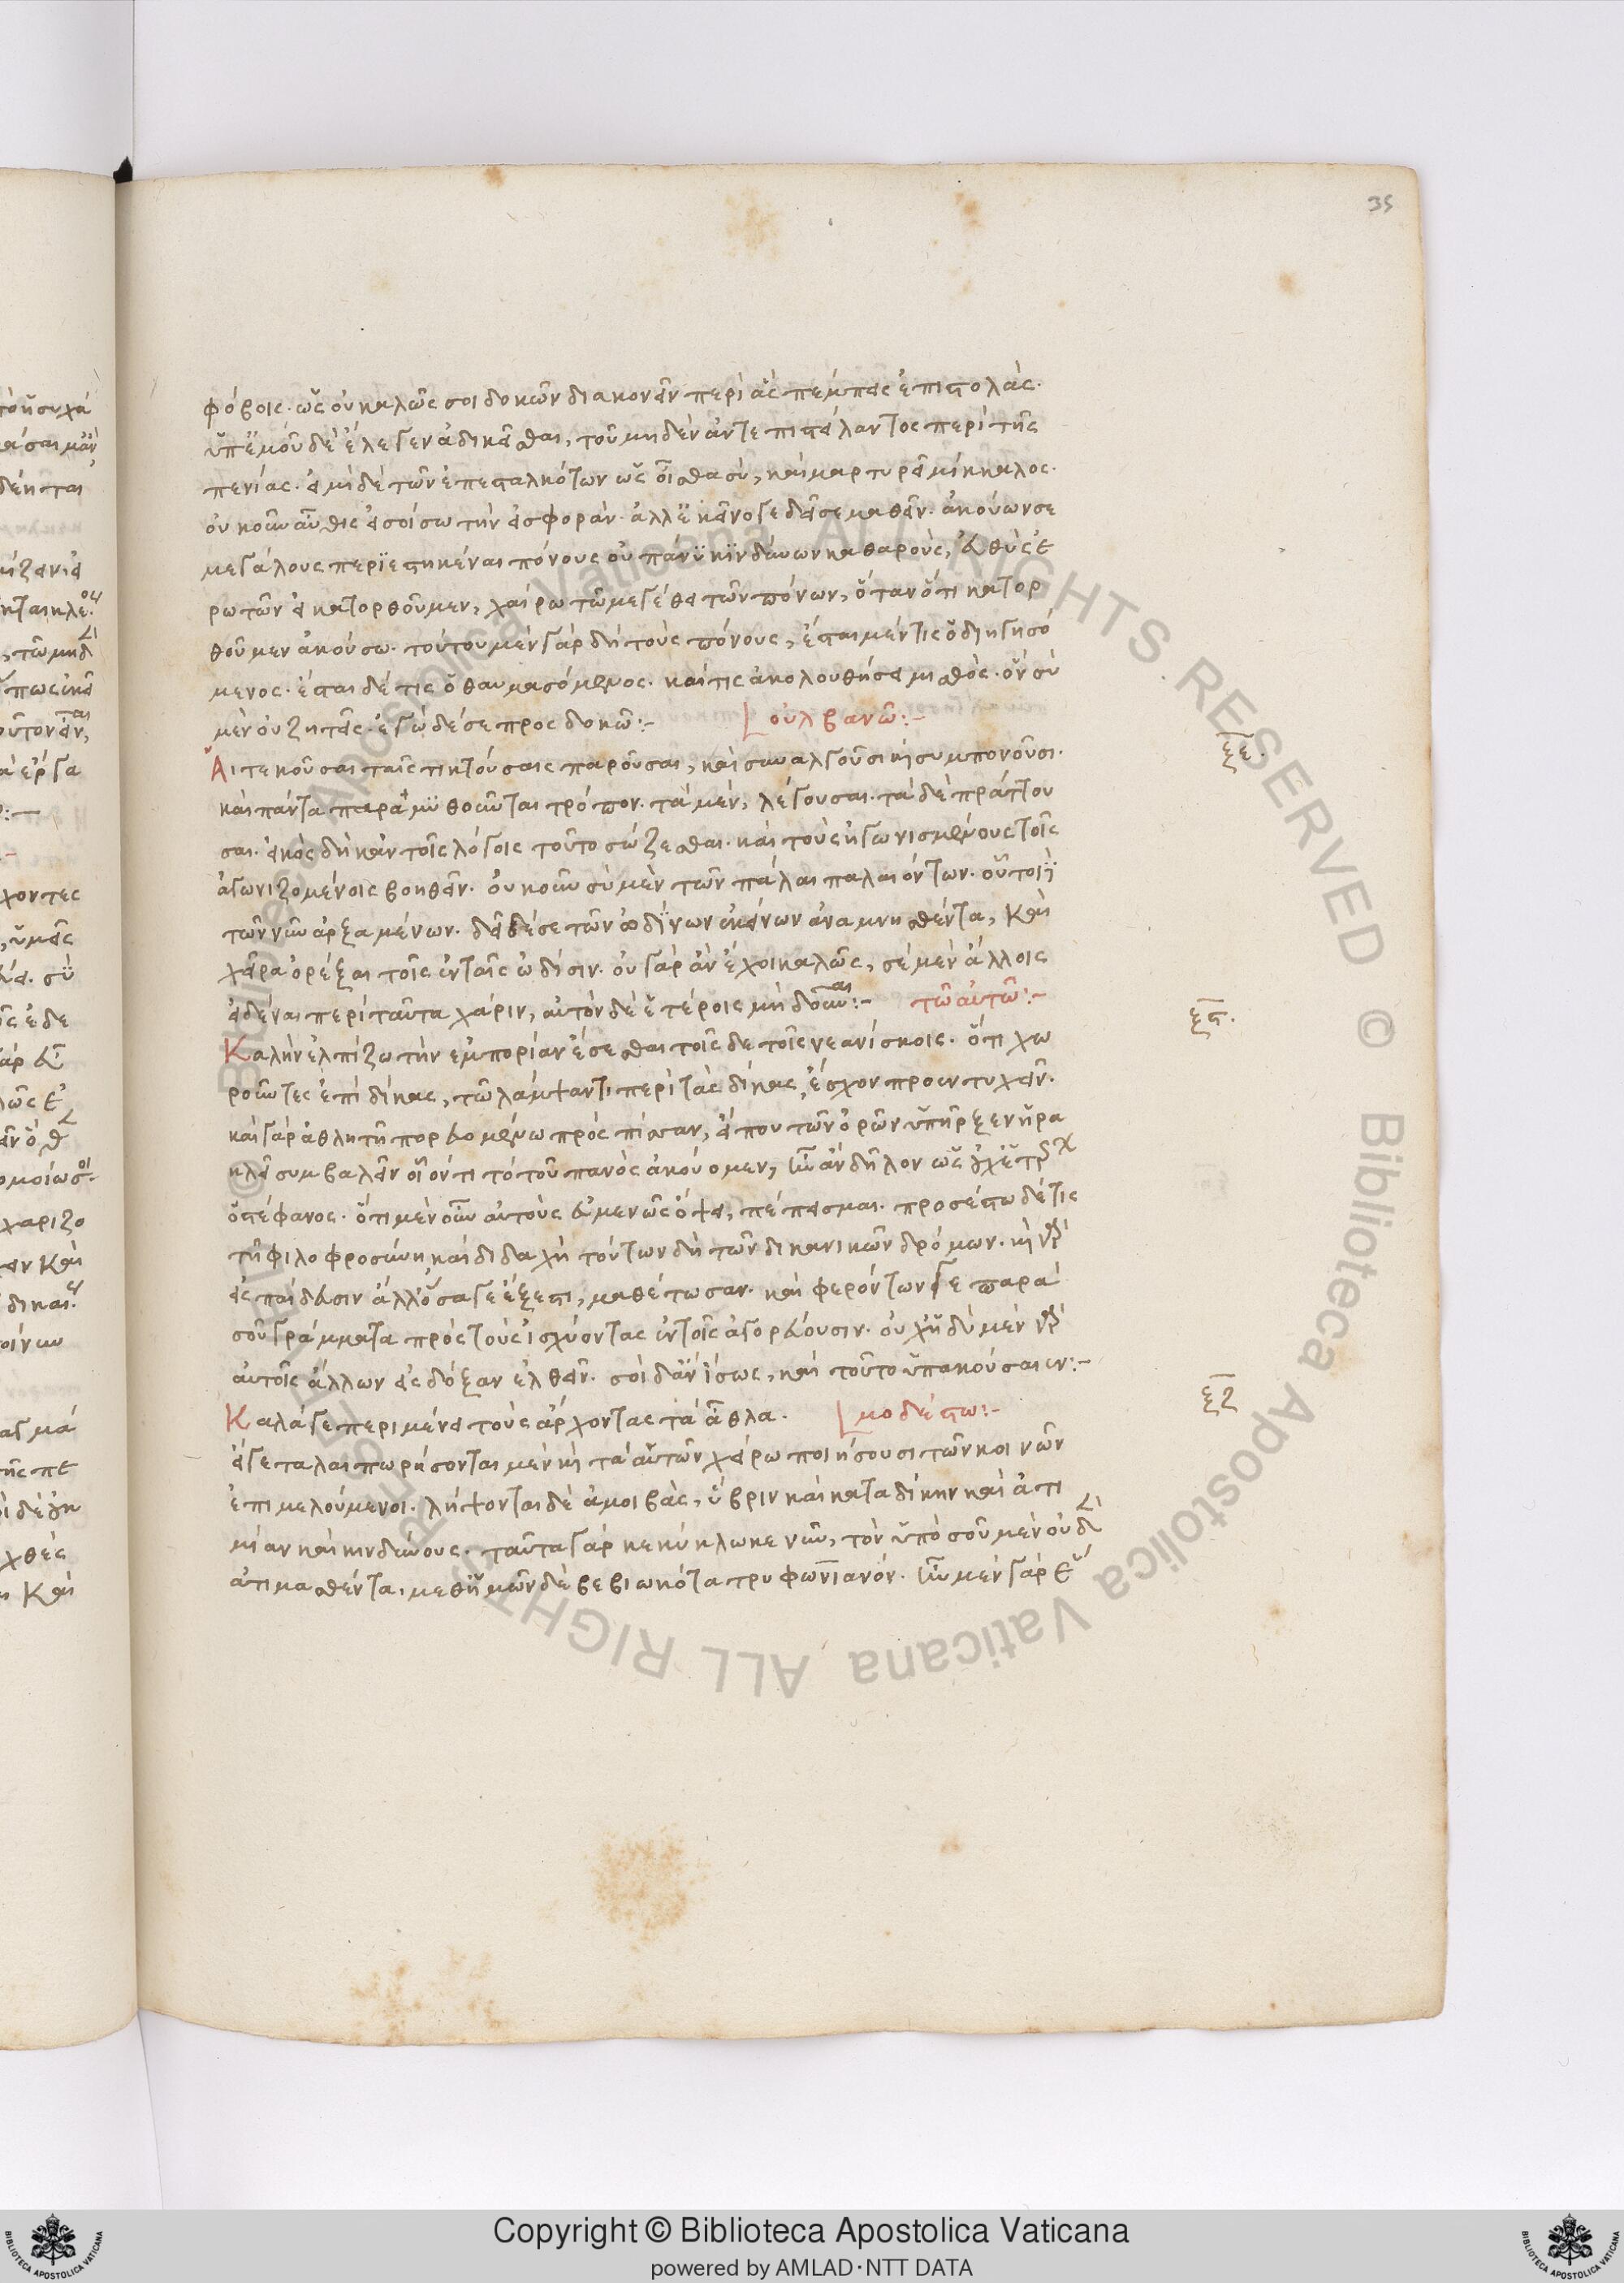 35
φόβοις. ὡς οὐ καλῶς σοι δοκῶν διακονεῖν περὶ ἃς πέμπεις ἐπιστολὰς.
ὑπ' ἐμοῦ δὲ ἔλεγεν ἀδικεῖσθαι, τοῦ μηδὲν ἀντεπιστείλαντος περὶ τῆς
πενίας. εἰμὶ δὲ τῶν ἐπεσταλκότων ὡς οἶσθα σύ, καὶ μαρτυρεῖ μίκκαλος.
οὐκοῦν αὖθις εἰσοίσω τὴν εἰσφορὰν. ἀλλ' ἐκεῖνό γε δεῖ σε μαθεῖν. ἀκούων σε
μεγάλους περιεστηκέναι πόνους οὐ πάνυ κινδύνων καθαροὺς, εὐθὺς ἐ
ρωτῶν εἰ κατορθοῦμεν, χαίρω τῶ μεγέθει τῶν πόνων, ὅταν ὅτι κατορ
θοῦμεν ἀκούσω. τούτου μὲν γὰρ δὴ τοὺς πόνους, ἔσται μέν τις ὁ διηγησό
μενος. ἔσται δέ τις ὁ θαυμασόμενος. καί τις ἀκολουθήσει μισθὸς. ὃν σὺ
μὲν οὐ ζητεῖς. ἐγὼ δέ σε προσδοκῶ:- οὐλβανῶ:-
ξε.
Αἱ τεκοῦσαι ταῖς τικτούσαις παροῦσαι, καὶ συναλγοῦσι καὶ συμπονοῦσι.
καὶ πάντα παραμυθοῦνται τρόπον. τὰ μὲν, λέγουσαι. τὰ δὲ πράττου
σαι. εἰκὸς δὴ κἀν τοῖς λόγοις τοῦτο σώζεσθαι. καὶ τοὺς ἠγωνισμένους τοῖς
ἀγωνιζομένοις βοηθεῖν. οὐκοῦν σὺ μὲν τῶν πάλαι παλαιόντων. οὑτοιῒ
τῶν νῦν ἀρξαμένων. δεῖ δέ σε τῶν ὠδίνων ἐκείνων ἀναμνησθέντα, καὶ
χεῖρα ὀρέξαι τοῖς ἐν ταῖς ὠδίσιν. οὐ γὰρ ἂν ἔχοι καλῶς, σὲ μὲν ἄλλοις
εἰδέναι περὶ ταῦτα χάριν, αὐτὸν δὲ ἑτέροις μὴ δοῦναι:- τῶ αὐτῶ:-
ξϛ.
Καλὴν ἐλπίζω τὴν ἐμπορίαν ἔσεσθαι τοῖσδε τοῖς νεανίσκοις. ὅτι χω
ροῦντες ἐπὶ δίκας, τῶ λάμψαντι περὶ τὰς δίκας, ἔσχον προεντυχεῖν.
καὶ γὰρ ἀθλητῆ πορευομένω πρὸς πίσαν, εἴ που τῶν ὀρῶν ὑπῆρξεν ἡρα
κλεῖ συμβαλεῖν οἷόν τι τὸ τοῦ πανὸς ἀκούομεν, ἦν ἂν δῆλον ὡς
ὁ στέφανος. ὅτι μὲν οὖν αὐτοὺς εὐμενῶς ὄψει, πέπεισμαι. προσέστω δέ τις
τῆ φιλοφροσύνη, καὶ διδαχὴ τούτων δὴ τῶν δικανικῶν δρόμων. καὶ
εἰς παίδευσιν ἀλλ' ὅσα γε ἔξεστι, μαθέτωσαν. καὶ φερόντων γε παρὰ
σοῦ γράμματα πρὸς τοὺς ἰσχύοντας ἐν τοῖς ἀγορεύουσιν. οὐχ ἡδὺ μὲν
αὐτοῖς ἄλλων εἰς δόξαν ἐλθεῖν. σοὶ δ' ἂν ἴσως, καὶ τοῦτο ὑπακούσαιεν:-
ξζ
Καλά γε περιμένει τοὺς ἄρχοντας τὰ ἆθλα. μοδέστω:-
εἴ γε ταλαιπωρήσονται μὲν καὶ τὰ αὑτῶν χείρω ποιήσουσι τῶν κοινῶν
ἐπιμελούμενοι. λήψονται δὲ ἀμοιβὰς, ὕβριν καὶ καταδίκην καὶ ἀτι
μίαν καὶ κινδύνους. ταῦτα γὰρ κεκύκλωκε νῦν, τὸν ὑπὸ σοῦ μὲν οὐδὲ
ἀτιμασθέντα, μεθ' ἡμῶν δὲ βεβιωκότα τρυφωνιανόν. ἦν μὲν γὰρ
Copyright © Biblioteca Apostolica Vaticana
powered by AMLAD·NTT DATA